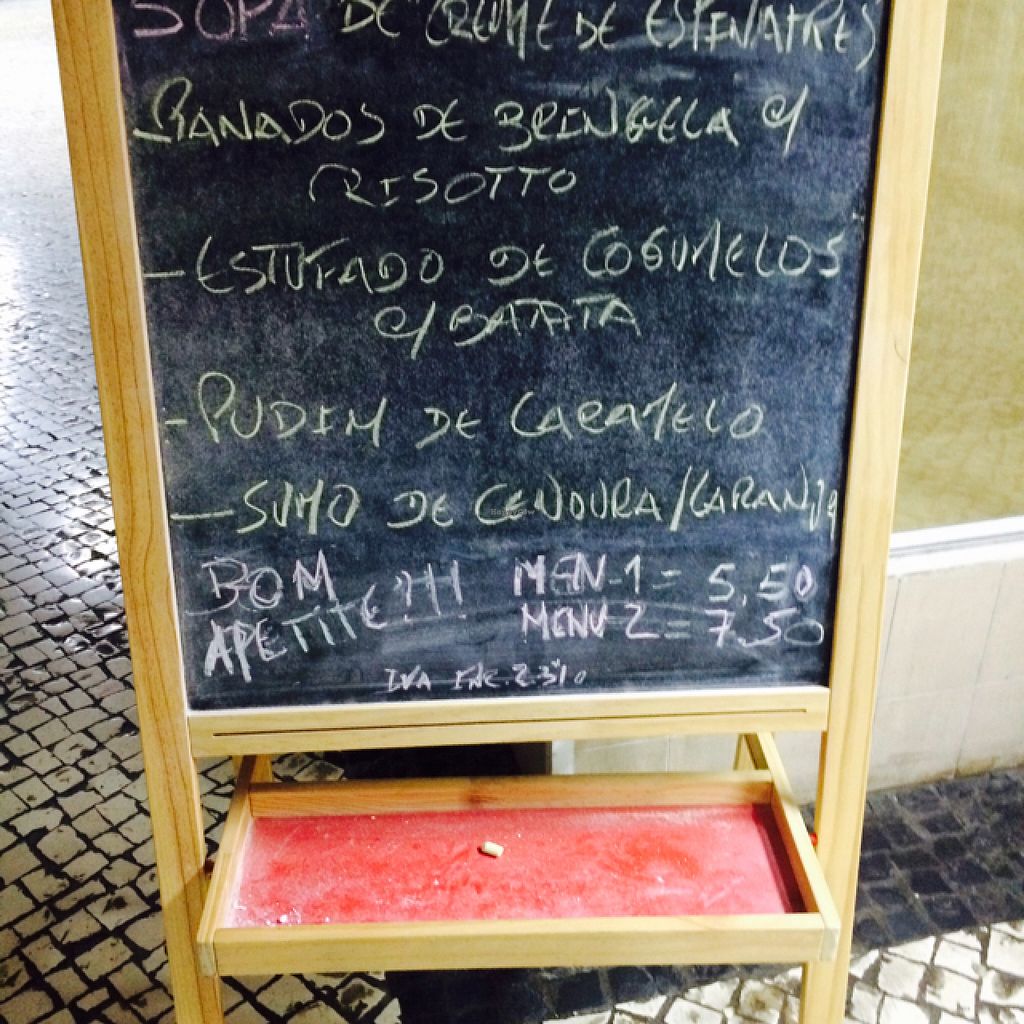 SOPA DE CREME DE ESPINAFRES
-PANADOS DE BRINGELA C/
RISOTTO
- ESTUFADO DE COGUMELOS
C/ BATATA
- PUDIM DE CARAMELO
- SUMO DE CENOURA/LARANJA
BOM APETITE!!!
MENU 1 = 5,50
MENU 2 = 7,50
IVA INC. 23%